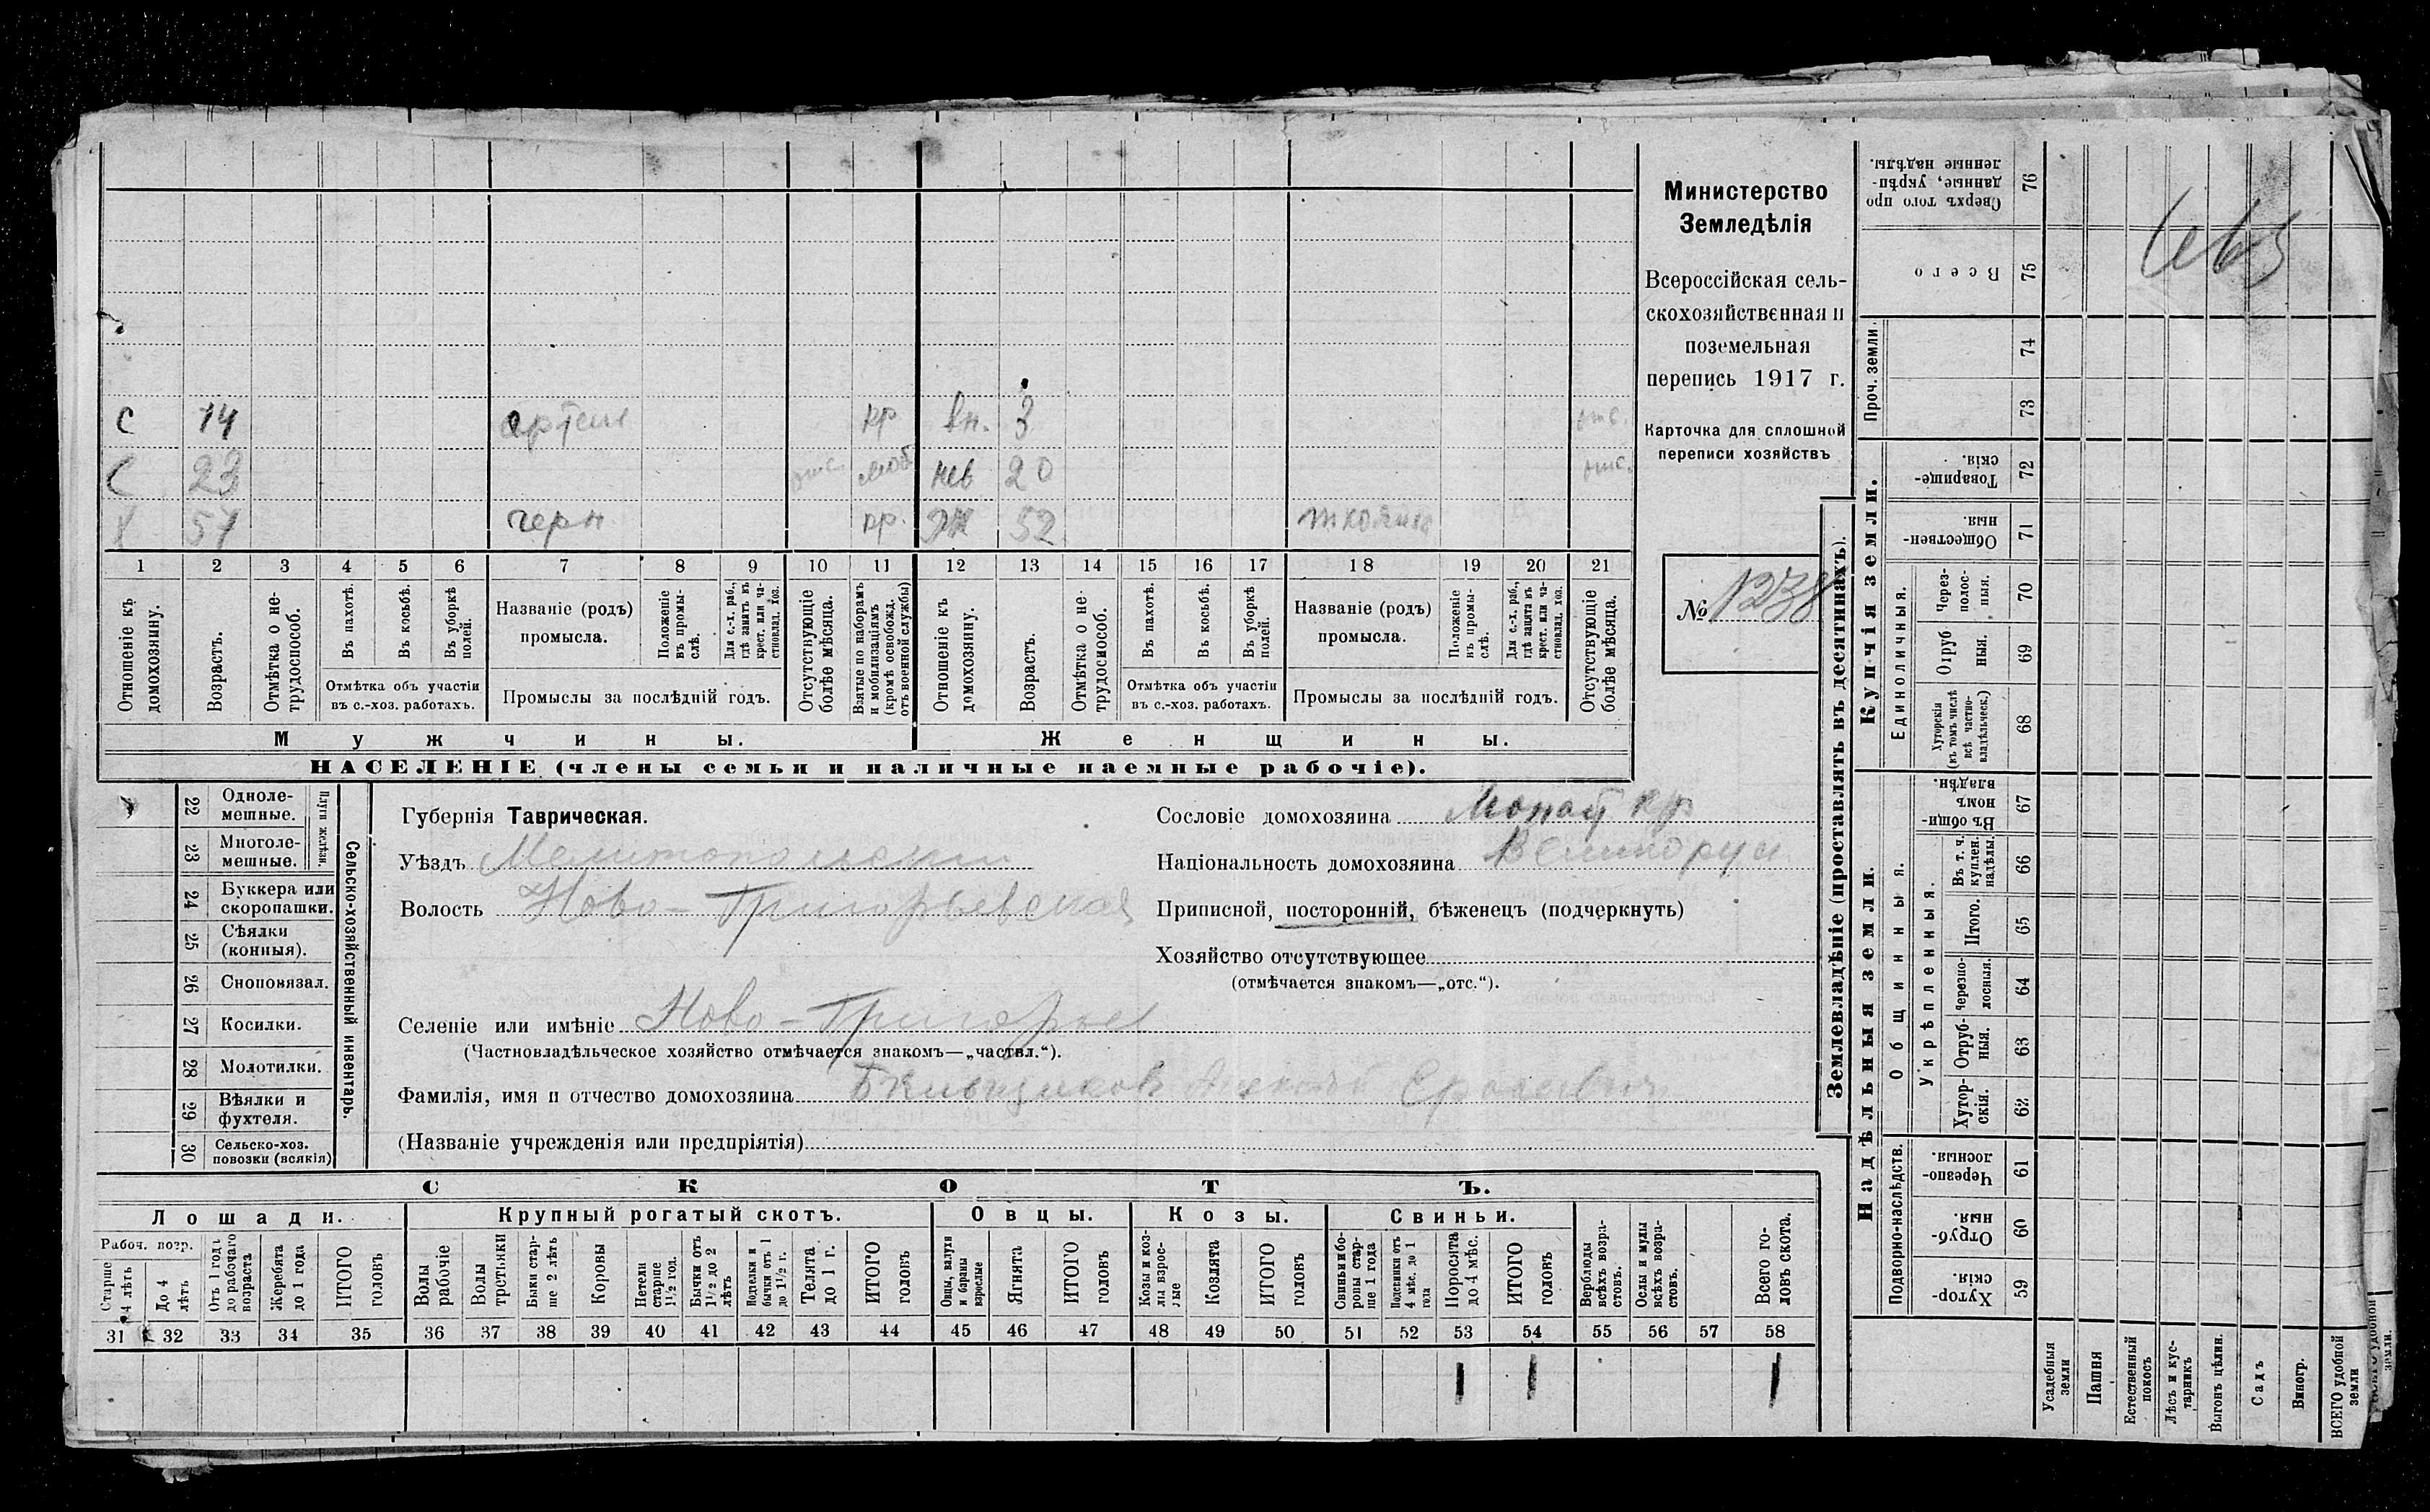 Министерство
Земледѣлія
Всероссійская сель-
скохозяйственная и
поземельная
перепись 1917 г.
Карточка для сплошной
переписи хозяйствъ
№ 1238
С 14 пр вн. 3 отс.
С 23 отс. моб нев 20 отс.
Х 51 черн пр. ж 52
1 2 3 4 5 6 7 8 9 10 11 12 13 14 15 16 17 18 19 20 21
Отношеніе къ домохозяину.
Возрастъ.
Отмѣтка о не-трудоспособ.
Въ пахотѣ.
Въ косьбѣ.
Въ уборкѣ полей.
Отмѣтка объ участіи
въ с.-хоз. работахъ.
Названіе (родъ)
промысла.
Положеніе въ промы-слѣ.
Для с.-х. раб., гдѣ занятъ въ крест. или ча-стновлад. хоз.
Промыслы за послѣдній годъ.
Отсутствующіе болѣе мѣсяца.
Взятые по наборамъ и мобилизаціямъ (кромѣ освобожд. отъ военной службы)
Отношеніе къ домохозяину.
Возрастъ.
Отмѣтка о не-трудоспособ.
Въ пахотѣ.
Въ косьбѣ.
Въ уборкѣ полей.
Отмѣтка объ участіи
въ с.-хоз. работахъ.
Названіе (родъ)
промысла.
Положеніе въ промы-слѣ.
Для с.-х. раб., гдѣ занята въ крест. или ча-стновлад. хоз.
Промыслы за послѣдній годъ.
Отсутствующіе болѣе мѣсяца.
Мужчины. Женщины.
НАСЕЛЕНІЕ (члены семьи и наличные наемные рабочіе).
22 Одноле-мешные.
23 Многоле-мешные.
Плуги желѣзн.
24 Буккера или скоропашки.
25 Сѣялки (конныя).
26 Сноповязал.
27 Косилки.
28 Молотилки.
29 Вѣялки и фухтеля.
30 Сельско-хоз. повозки (всякія)
Сельско-хозяйственный инвентарь.
Губернія Таврическая.
Уѣздъ Мелитопольскій
Волость Ново-Григорьевская
Селеніе или имѣніе Ново-Григорьев
(Частновладѣльческое хозяйство отмѣчается знакомъ—„частвл.“).
Фамилія, имя и отчество домохозяина
(Названіе учрежденія или предпріятія)
Сословіе домохозяина
Національность домохозяина Великорусс
Приписной, посторонній, бѣженецъ (подчеркнуть)
Хозяйство отсутствующее
(отмѣчается знакомъ—„отс.“).
СКОТЪ.
Лошади. Крупный рогатый скотъ. Овцы. Козы. Свиньи.
Рабоч. возр.
Старше 4 лѣтъ
До 4 лѣтъ
Отъ 1 года до рабочаго возраста
Жеребята до 1 года
ИТОГО головъ
Волы рабочіе
Волы третьяки
Быки стар-ше 2 лѣтъ
Коровы
Нетели старше 1½ год.
Бычки отъ 1½ до 2 лѣтъ
Подтелки и бычки отъ 1 до 1½ г.
Телята до 1 г.
ИТОГО головъ
Овцы, валухи и бараны взрослые
Ягнята
ИТОГО головъ
Козы и коз-лы взрос-лые
Козлята
ИТОГО головъ
Свиньи и бо-ровы стар-ше 1 года
Подсвинки отъ 4 мѣс. до 1 года
Поросята до 4 мѣс.
ИТОГО головъ
Верблюды всѣхъ возра-стовъ.
Ослы и мулы всѣхъ возра-стовъ.
Всего го-ловъ скота.
31 32 33 34 35 36 37 38 39 40 41 42 43 44 45 46 47 48 49 50 51 52 53 54 55 56 57 58
1 1 1
Землевладѣніе (проставлять въ десятинахъ).
Купчія земли.
Надѣльныя земли.
Сверхъ того про-данные, укрѣп-ленные надѣлы. 76
Всего 75
Проч. земли.
74
73
Товарище-скія. 72
Обществен-ныя. 71
Единоличныя.
Через-полос-ныя. 70
Отруб ныя. 69
Хуторскія (въ томъ числѣ всѣ частно-владѣльческ.) 68
Въ общи-номъ владѣн. 67
Общинныя.
Укрѣпленныя.
Въ т. ч. куплен. надѣлы. 66
Итого. 65
Черезпо-лосныя. 64
Отруб-ныя. 63
Хутор-скія. 62
Подворно-наслѣдств.
Черезпо-лосныя. 61
Отруб-ныя. 60
Хутор-скія. 59
Усадебныя земли
Пашня
Естественный покосъ
Лѣсъ и кус-тарникъ
Выгонъ цѣлин.
Садъ
Виногр.
ВСЕГО удобной земли